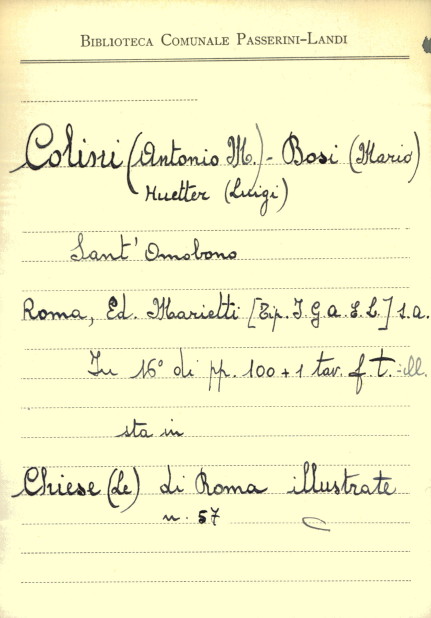 BIBLIOTECA COMUNALE PASSERINI-LANDI
Colini (Antonio M.) - Bosi (Mario)
Huetter (Luigi)
Sant' Omobono
Roma, Ed. Marietti [Tip. I.G.A.E.L.] s.a.
In 16° di pp. 100 + 1 tav. f. t. ill.
sta in
Chiese (Le) di Roma illustrate
n. 57